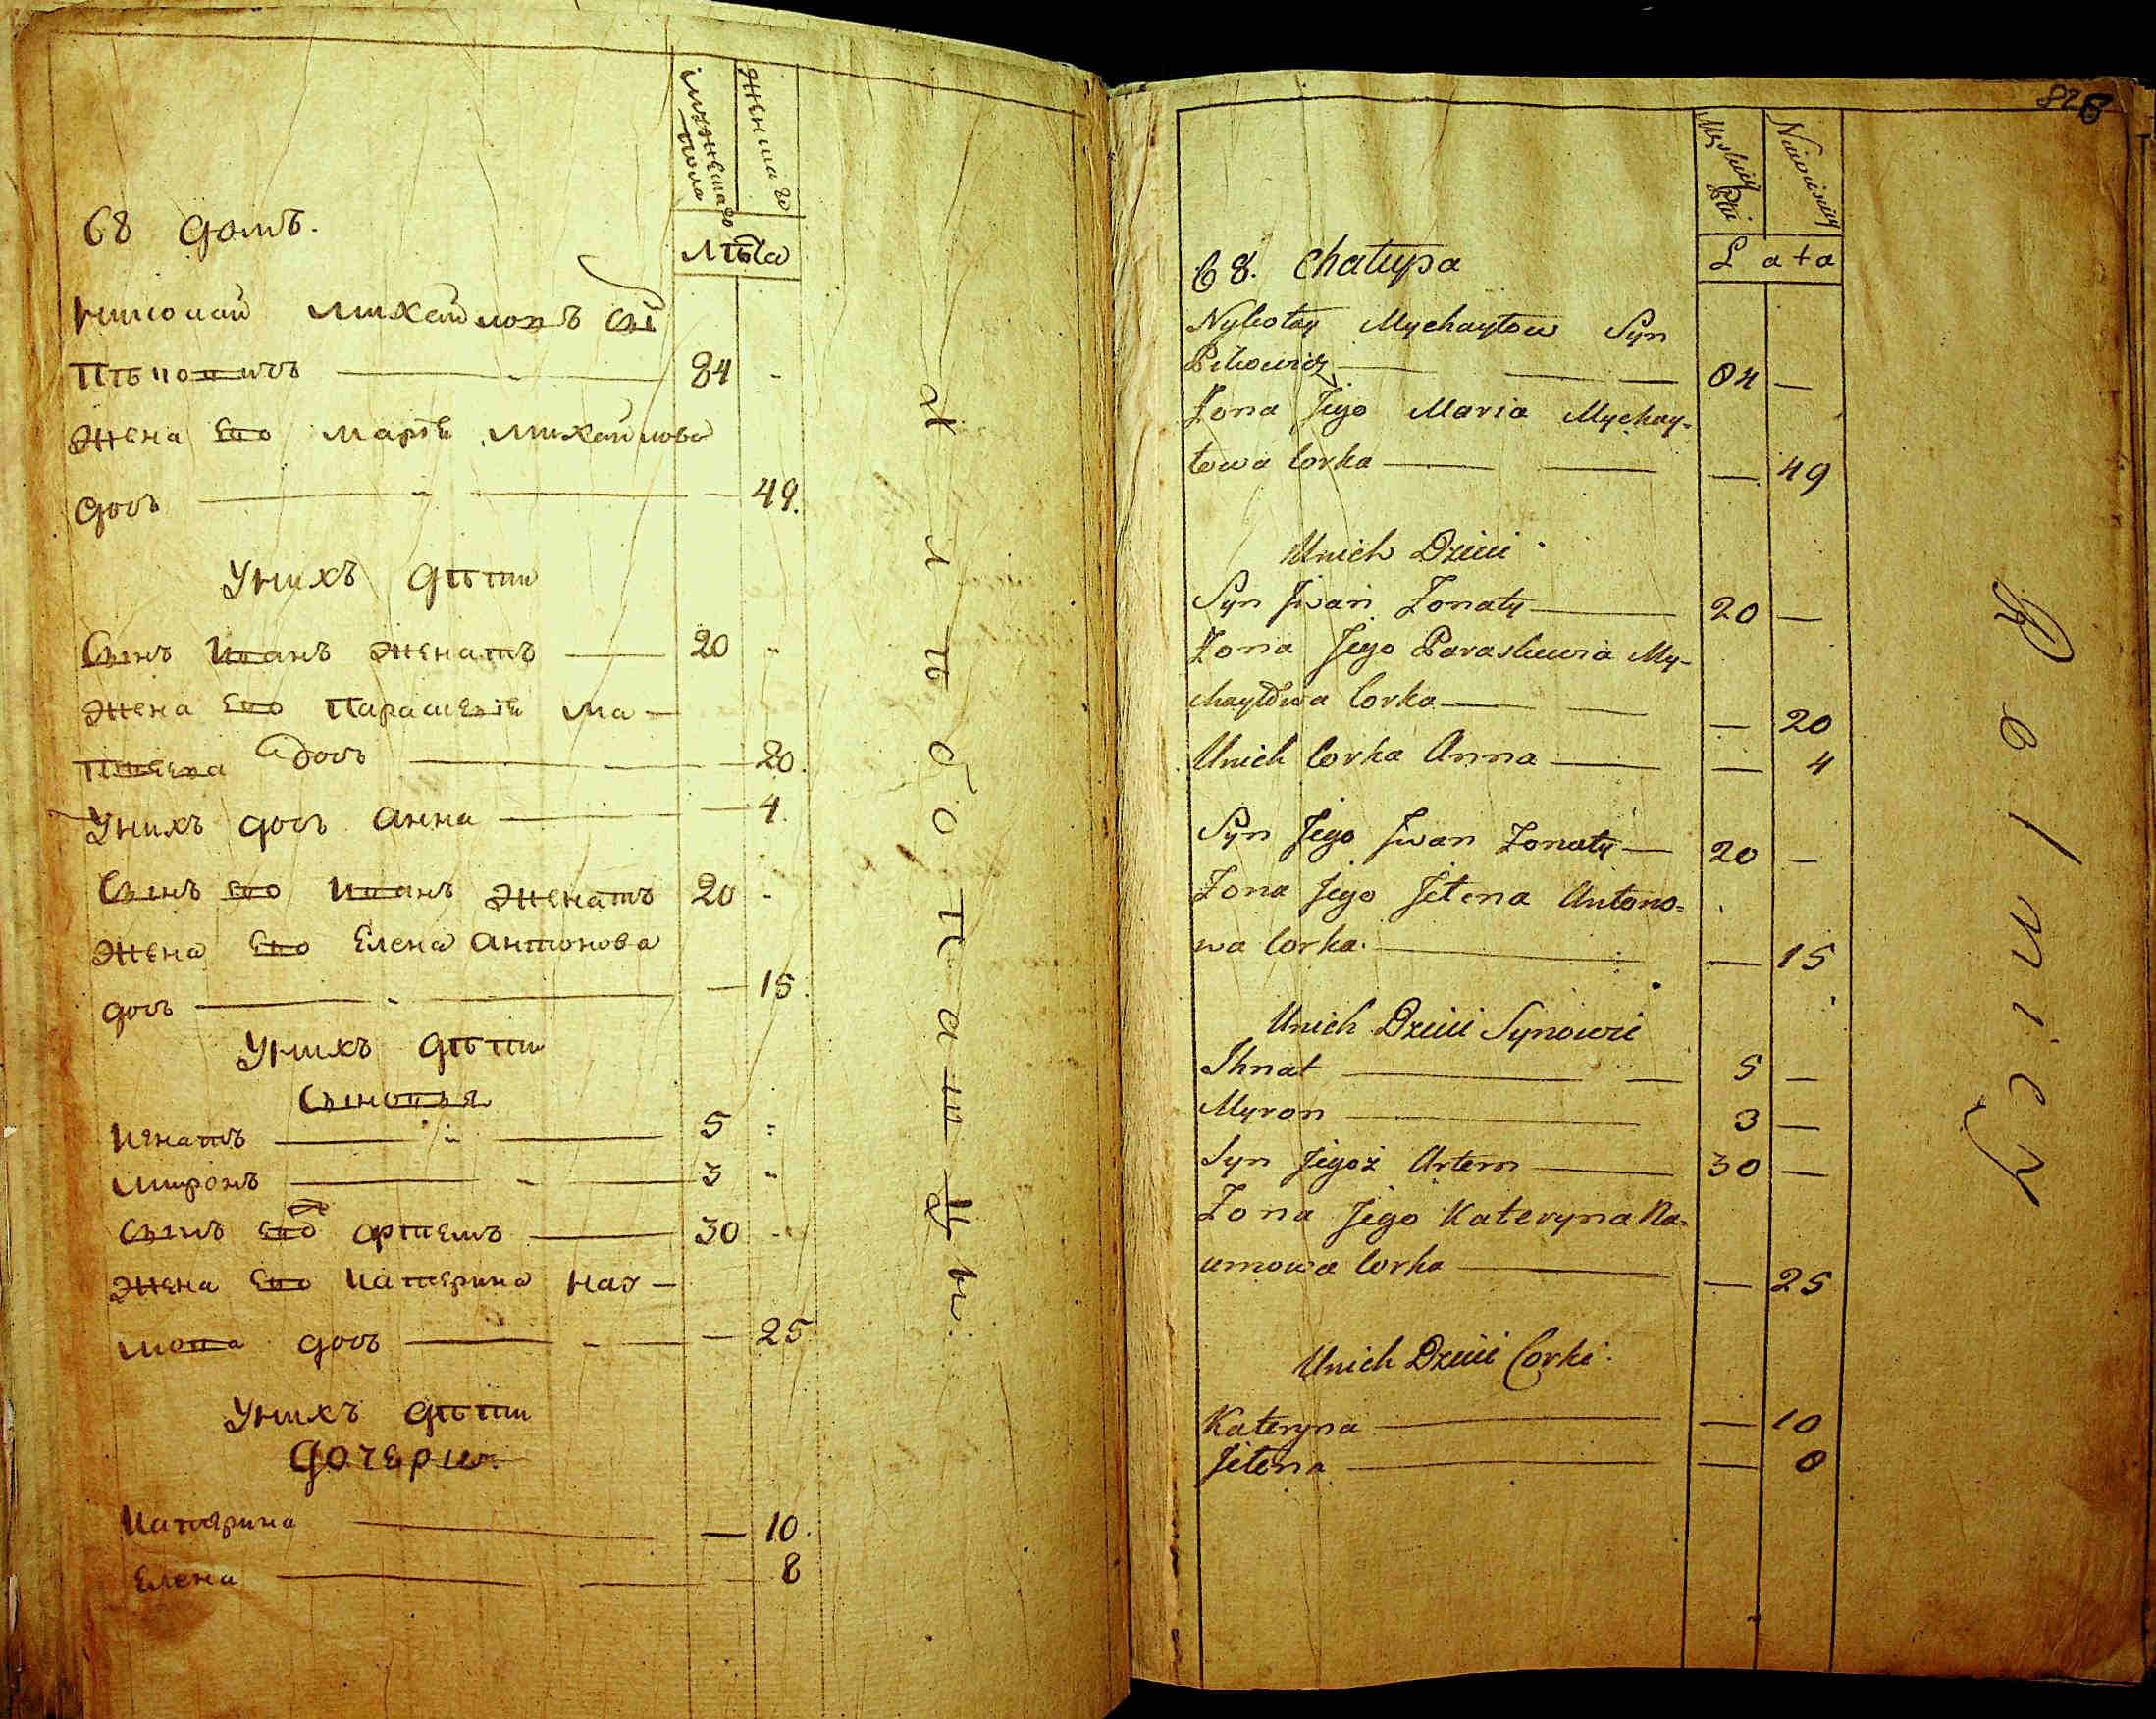 мужеска
пола
женска го
Лѣта
68 домъ.
Николай Михайловъ сн҃ъ
Пѣковичъ — 84 -
Жена его Марія Михайлова
дочь — — 49.
У нихъ дѣти
Сынъ Иванъ женатъ — 20 -
Жена его Параскевія Ма-
твеева дочь — — 20.
У нихъ дочь Анна — — 4.
Сынъ его Иванъ женатъ 20 -
Жена его Елена Антонова
дочь — — 15.
У нихъ дѣти
сыновья
Игнатъ — 5 -
Миронъ — 3 -
Сынъ его Артемъ — 30 -
Жена его Катерина Нау-
мова дочь — — 25
У нихъ дѣти
дочери.
Катерина — — 10.
Елена — — 8
Хлѣбопашцы.
826
Męskiey Płci
Niewieściey
Lata
68. Chałupa
Nykołay Mychayłow Syn
Pikowicz — 84 —
Żona Jego Maria Mychay-
łowa Corka — — 49
Unich Dzieci
Syn Jwan Żonaty — 20 —
Żona Jego Paraskewia My-
chayłowa Corka — — 20
Unich Corka Anna — — 4
Syn Jego Jwan Żonaty — 20 —
Żona Jego Jełena Antono-
wa Corka. — — 15
Unich Dzieci Synowie
Ihnat — 5 —
Myron — 3 —
Syn Jegoż Artem — 30 —
Żona Jego Kateryna Na-
umowa Corka — — 25
Unich Dzieci Corki.
Kateryna — — 10
Jełena — — 8
Rolnicy